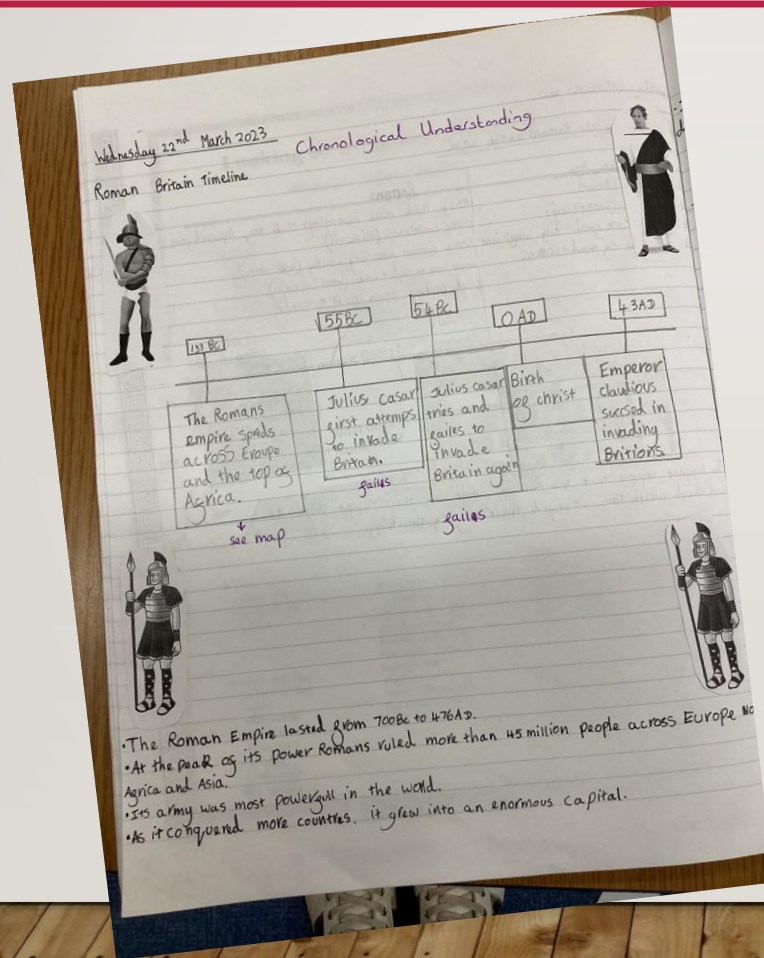 Wednesday 22nd March 2023
Chronological Understanding
Roman Britain Timeline
133 BC
55BC
54 BC
0 AD
43AD
The Romans
empire spreds
across Eroupe
and the top of
Africa.
↓
see map
Julius Casar
first attemps
to invade
Britan.
fails
Julius casar
tries and
failes to
invade
Britain again
failes
Birth
of christ
Emperor
claudious
succsed in
invading
Britions.
•The Roman Empire lasted from 700Bc to 476AD.
•At the peak of its power Romans ruled more than 45 million people across Europe No
Africa and Asia.
•Its army was most powerfull in the world.
•As it conquered more countres, it grew into an enormous capital.